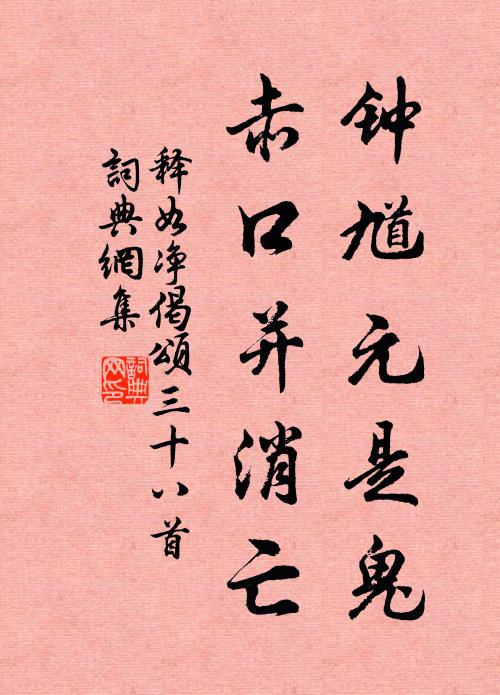 钟馗元是鬼
赤口并消亡
释如净偈颂三十八首
詞典網集
詞典网印